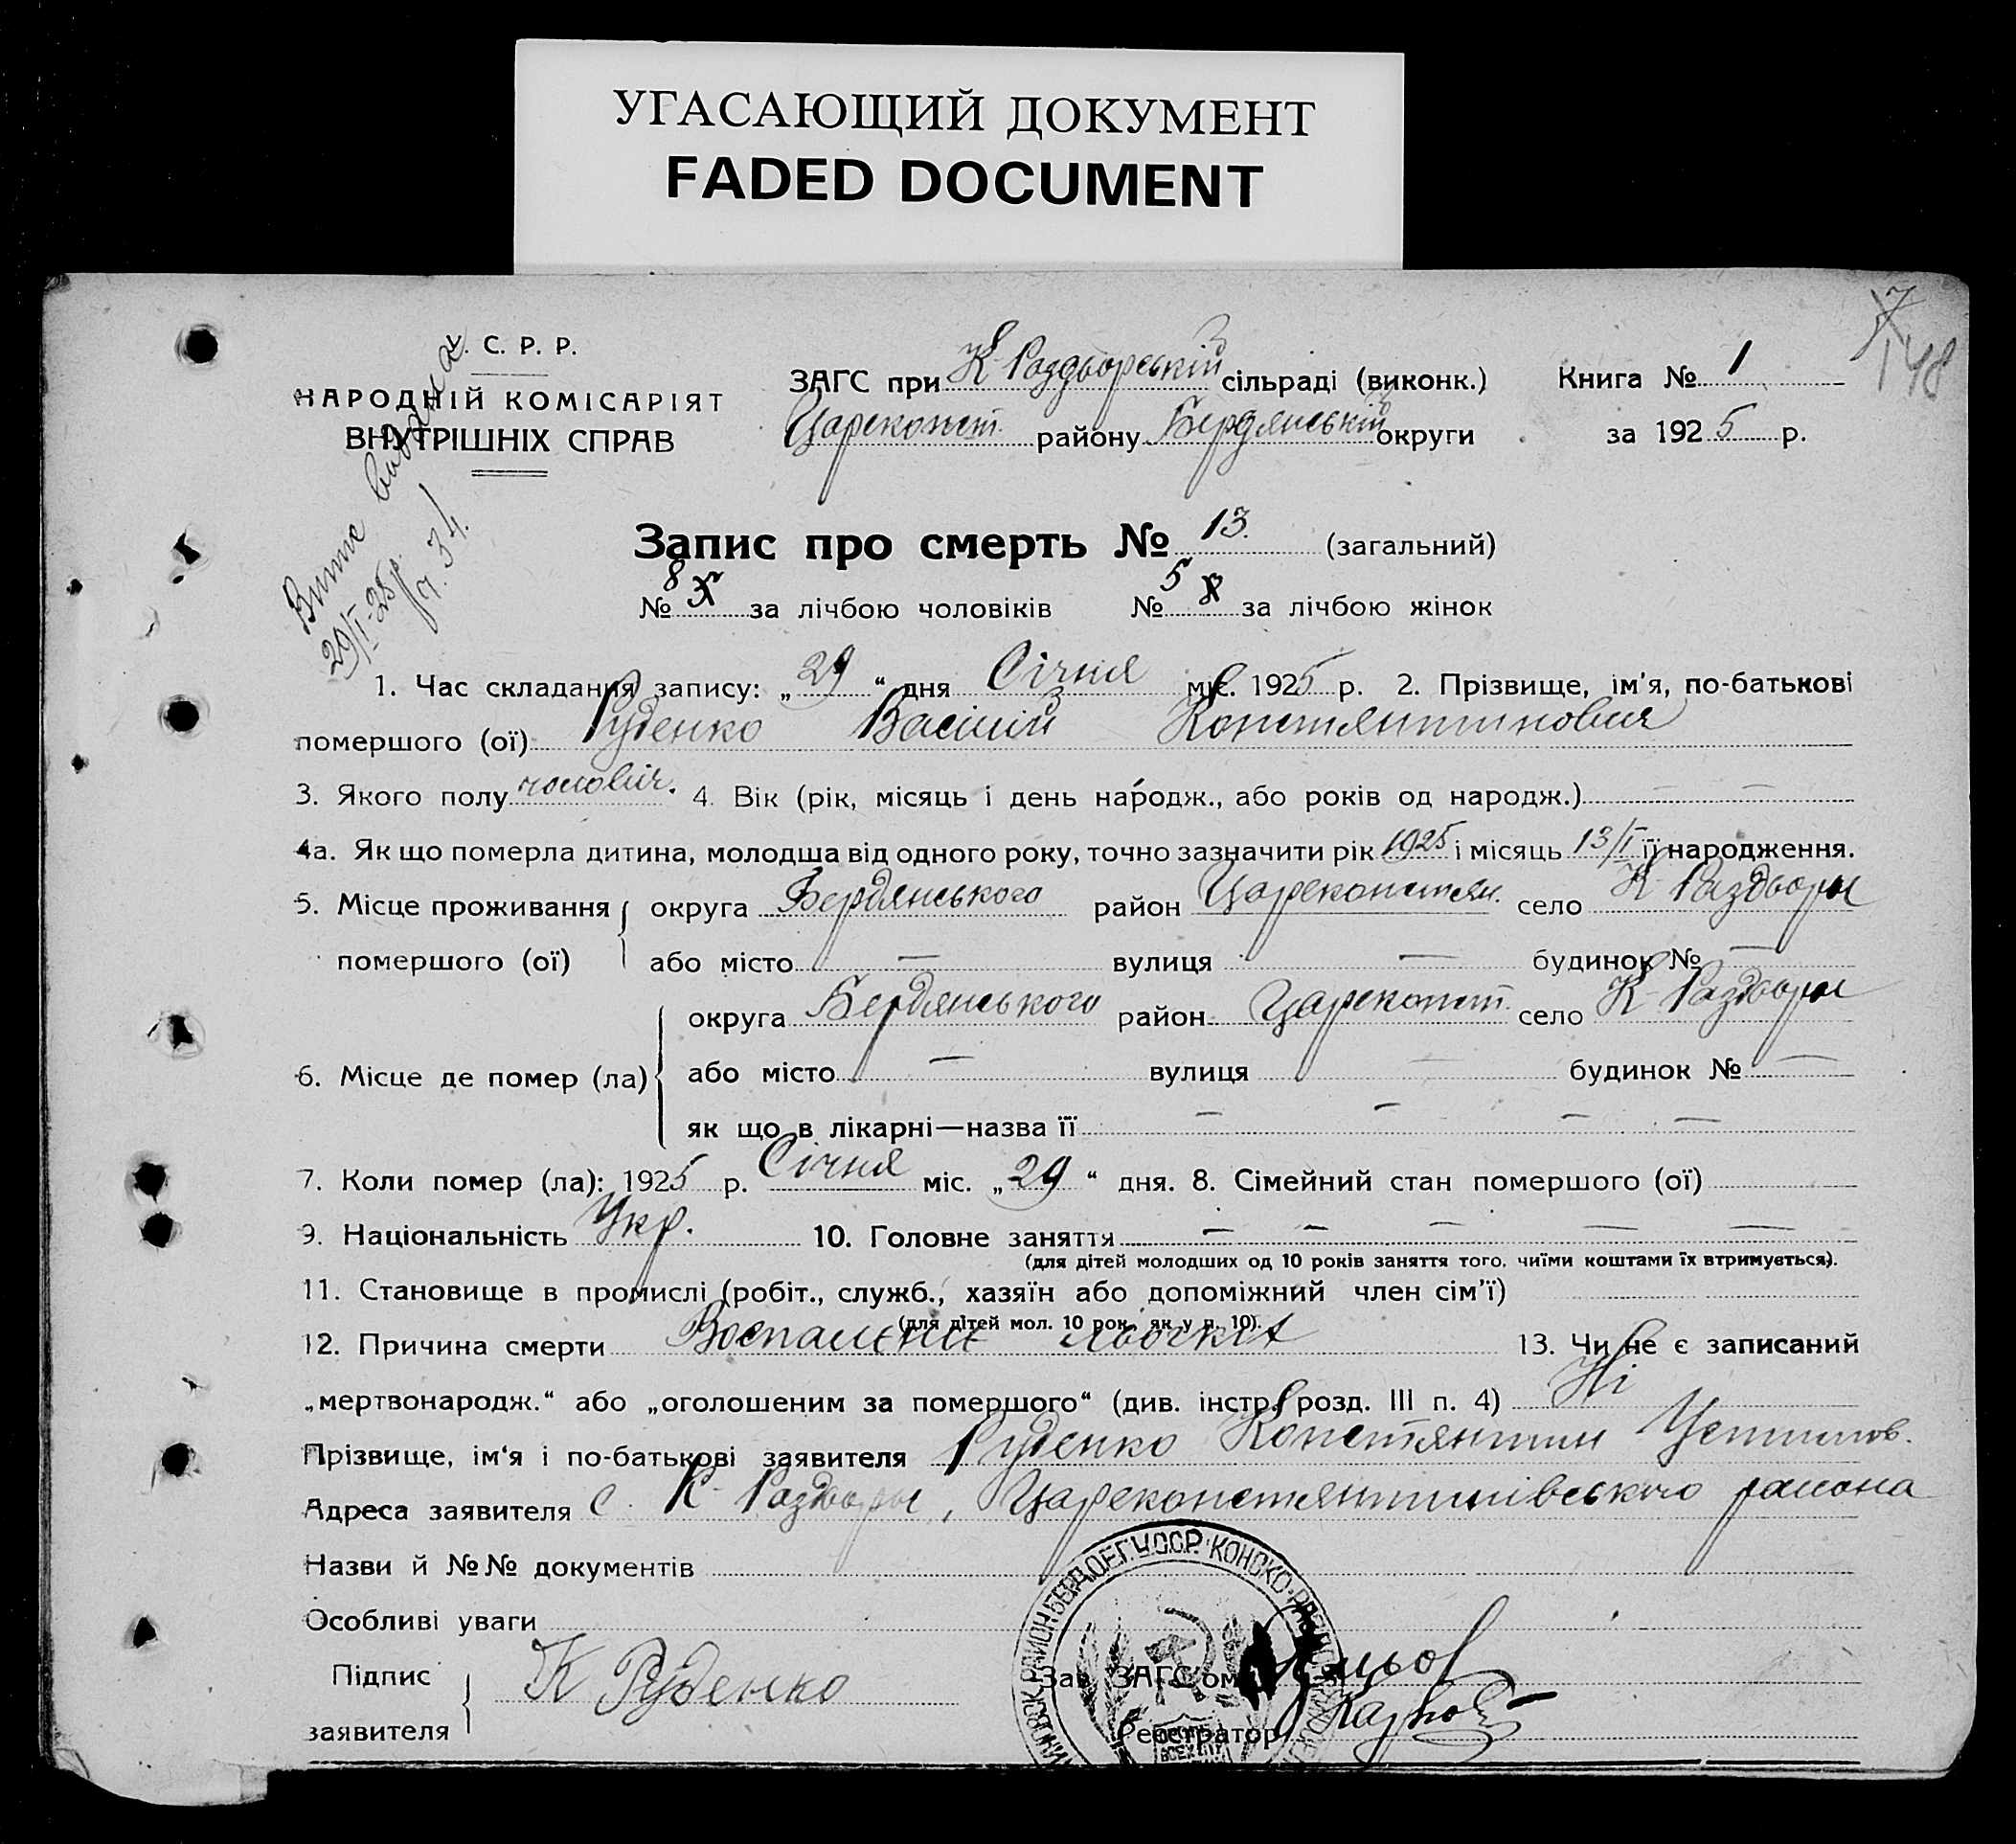 УГАСАЮЩИЙ ДОКУМЕНТ
FADED DOCUMENT
7
148
У. С. Р. Р.
НАРОДНІЙ КОМІСАРІЯТ
ВНУТРІШНІХ СПРАВ
Витяг видана
29/I-25 р.
ч. 34.
ЗАГС при К-Раздорській сільраді (виконк.)
Цареконст. району Бердянській округи
Книга № 1
за 1925 р.
Запис про смерть № 13. (загальний)
№ 8 5 за лічбою чоловіків № 5 8 за лічбою жінок
1. Час складання запису: „29“ дня Січня міс. 1925 р. 2. Прізвище, ім’я, по-батькові
помершого (ої) Руденко Васілій Констянтинович
3. Якого полу чоловіч. 4. Вік (рік, місяць і день народж., або років од народж.) — —
4а. Як що померла дитина, молодша від одного року, точно зазначити рік 1925 і місяць 13/I її народження.
5. Місце проживання округа Бердянського район Цареконстян. село К-Раздоры
помершого (ої) або місто — вулиця — будинок № —
округа Бердянського район Цареконст. село К-Раздоры
6. Місце де помер (ла) або місто — вулиця — будинок № —
як що в лікарні—назва її — — — —
7. Коли помер (ла): 1925 р. Січня міс. „29“ дня. 8. Сімейний стан помершого (ої)
9. Національність Укр. 10. Головне заняття — — — — —
(для дітей молодших од 10 років заняття того, чиїми коштами їх втримується).
11. Становище в промислі (робіт., служб., хазяїн або допоміжний член сім’ї)
(для дітей мол. 10 рок., як у п. 10).
12. Причина смерти Воспаленіє 13. Чи не є записаний
„мертвонародж.“ або „оголошеним за помершого“ (див. інстр. розд. III п. 4) Ні
Прізвище, ім‘я і по-батькові заявителя Руденко Констянтин Устинов.
Адреса заявителя с. К-Раздоры, Цареконстянтинівського района
Назви й №№ документів
Особливі уваги
Підпис
заявителя К Руденко
Зав. ЗАГС‘ом
Реєстратор